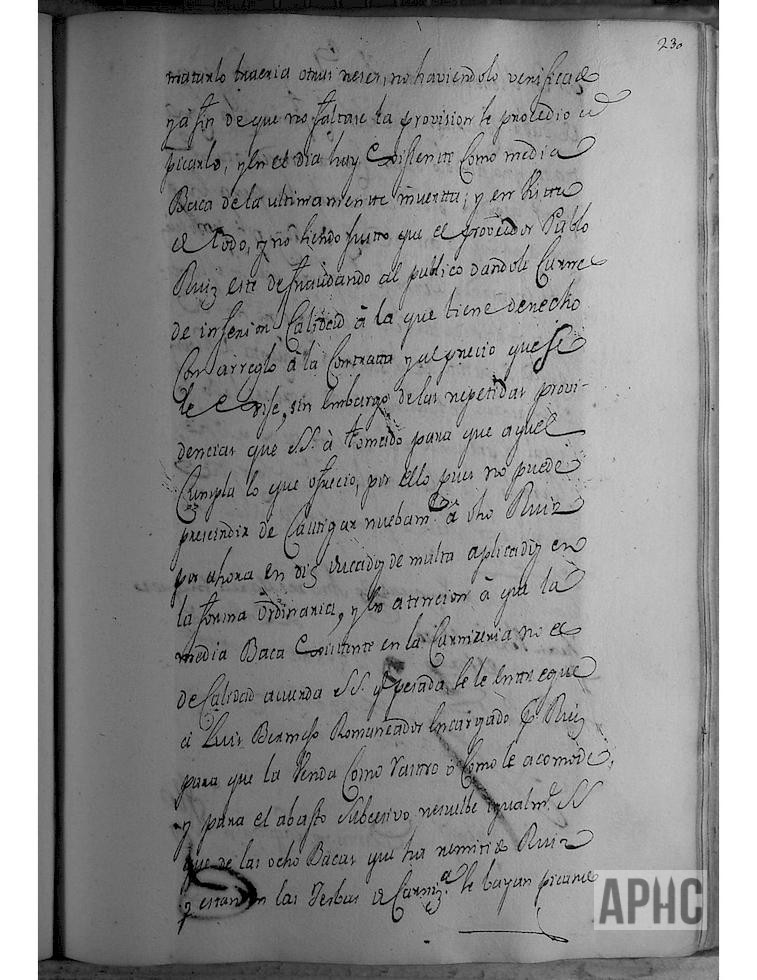 230
matarlo traeria otras reses, no haviendolo verificado
y a fin de que no faltase la provision se procedio a
picarlo, y en el dia hay existente como media
Baca de la ultimamente muerta; y en vista
de todo, y no siendo justo que el proveedor Pablo
Ruiz este defraudando al publico dandole Carne
de inferior Calidad à la que tiene derecho
Con arreglo à la Contrata y al precio que se
le exije, sin embargo de las repetidas provi-
dencias que SS. à tomado para que aquel
Cumpla lo que ofrecio, por ello pues no puede
prescindir de Castigar nuebam.te à dho Ruiz
por ahora en diz ducados de multa aplicados en
la forma Ordinaria, y en atencion à que la
media Baca existente en la Carniceria no es
de Calidad acuerda SS. q.e pesada se le entregue
à Luis Bermejo Romaneador encargado p.r Ruiz
para que la Venda Como Rastro ò Como le acomode,
y para el abasto Subcesivo resuelbe igualm.te SS
que de las ocho Bacas que ha remitido Ruiz
y estan en las Yerbas de Carniz.a se bayan picando
APHC